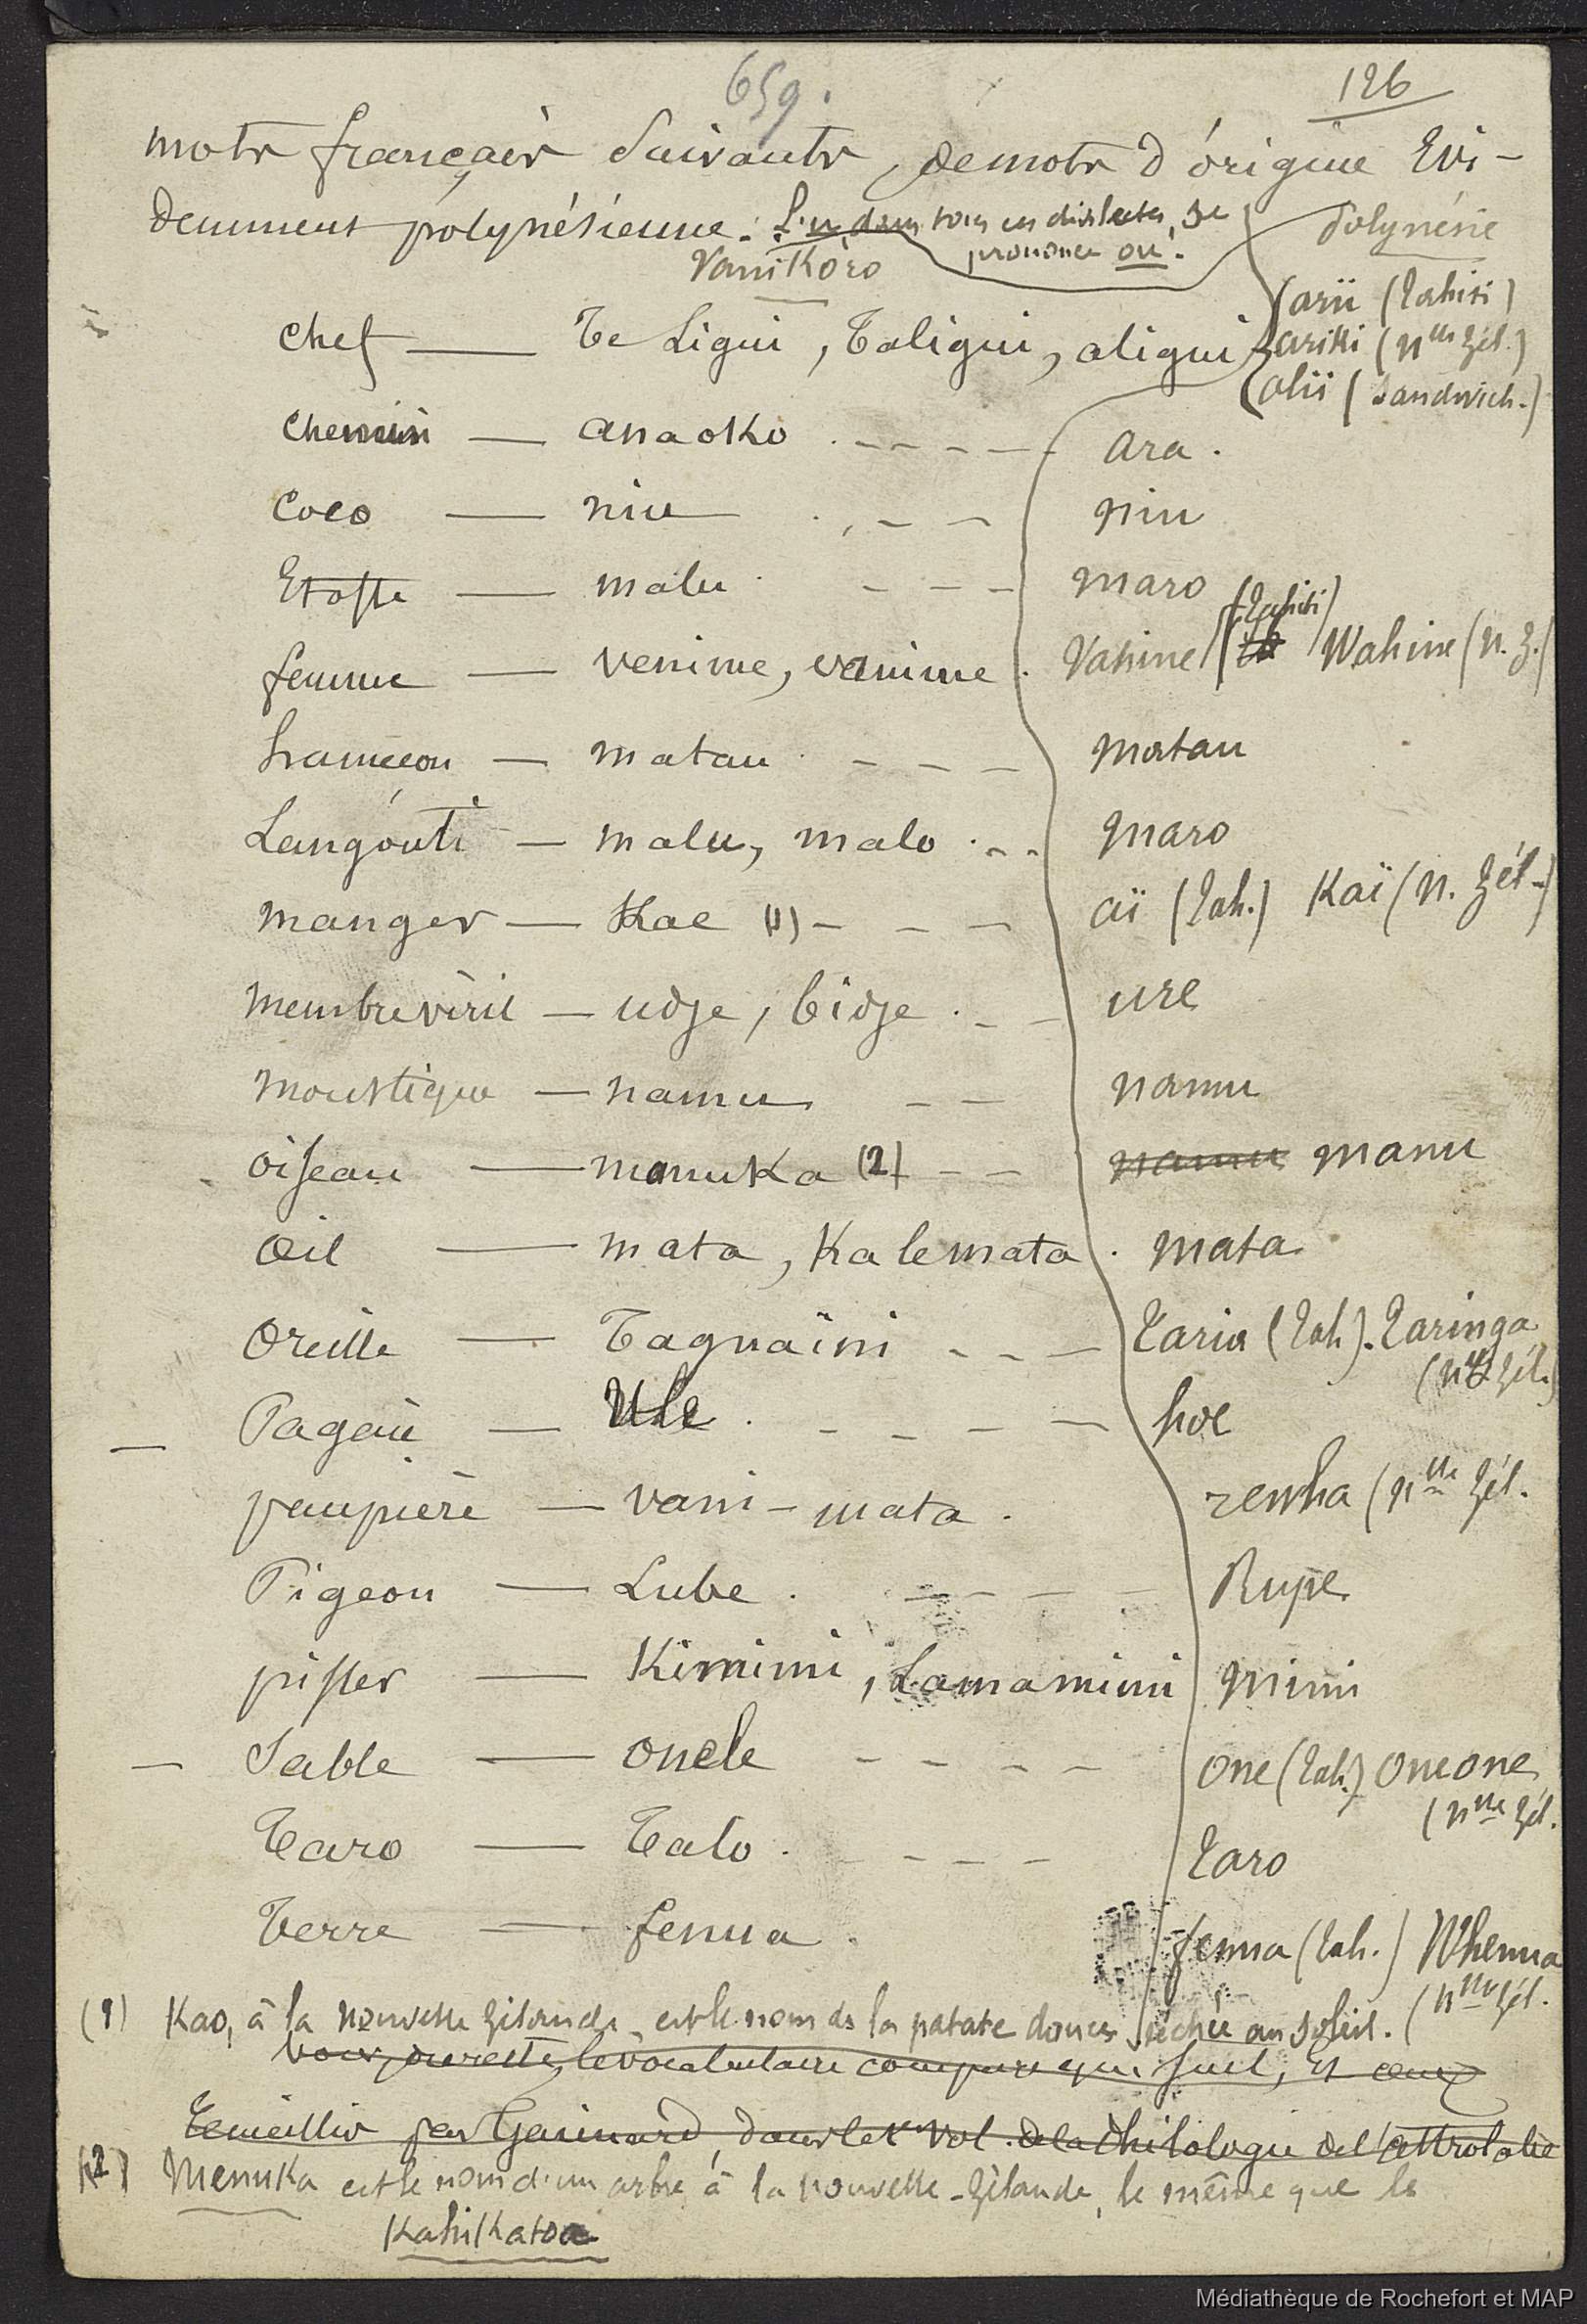 659.
126
mots français suivants, de mots d'origine Evi-
demment polynésienne. L'u, dans tous ces dialectes, se
prononce ou.
Polynésie
Vanikoro
chef — Te Ligui, Taligui, aligui
arii (Tahiti)
ariki (Nlle Zél.)
alii (Sandwich.)
chemin — anaoko . - - - - ara.
Coco — niu . , - - niu
Etoffe — malu - - - maro
femme — venime, vanime . Vahine (Tahiti) Wahine (N. Z.)
hameçon — matau - - - matau
Langouti — malu, malo . - - maro
manger — Kae (1) - - - aï (Tah.) Kaï (N. Zél.)
membre viril — udje, bidje . - - ure
moustique — namu - - namu
oiseau — manuka (2) - - namu manu
Œil — mata, Kalemata . mata
Oreille — Tagnaïni - - - Taria (Tah). Taringa
(Nlle Zél.)
Pagaie — Uhe . - - - - hoe
paupière — vani-mata . rewha (Nlle Zél.
Pigeon — Lube . - - - - Rupe
pisser — Kimimi, Lamamimi mimi
Sable — onele - - - - one (Tah.) oneone
(Nlle Zél.
Taro — Talo . - - - - Taro
Terre — fenua . fenua (Tah.) Whenua
(Nlle Zél.
(1) Kao, à la nouvelle Zélande, est le nom de la patate douce séchée au soleil.
voir, du reste, le vocabulaire comparé qui suit, et ceux
recueillis par Gaimard, dans le 1er vol. de la Philologie de l'Astrolabe
(2) Manuka est le nom d'un arbre à la nouvelle-Zélande, le même que le
Kahikatoa
Médiathèque de Rochefort et MAP